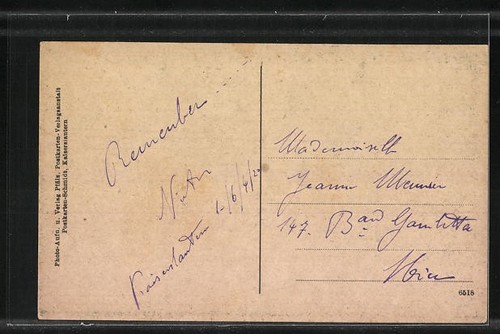 Photo-Aufn. u. Verlag Pfälz. Postkarten-Verlagsanstalt
Postkarten-Schmidt, Kaiserslautern
Remember
Kaiserslautern
Mademoiselle
Jeanne Meunier
147. Bard Gambetta
Nice
6518